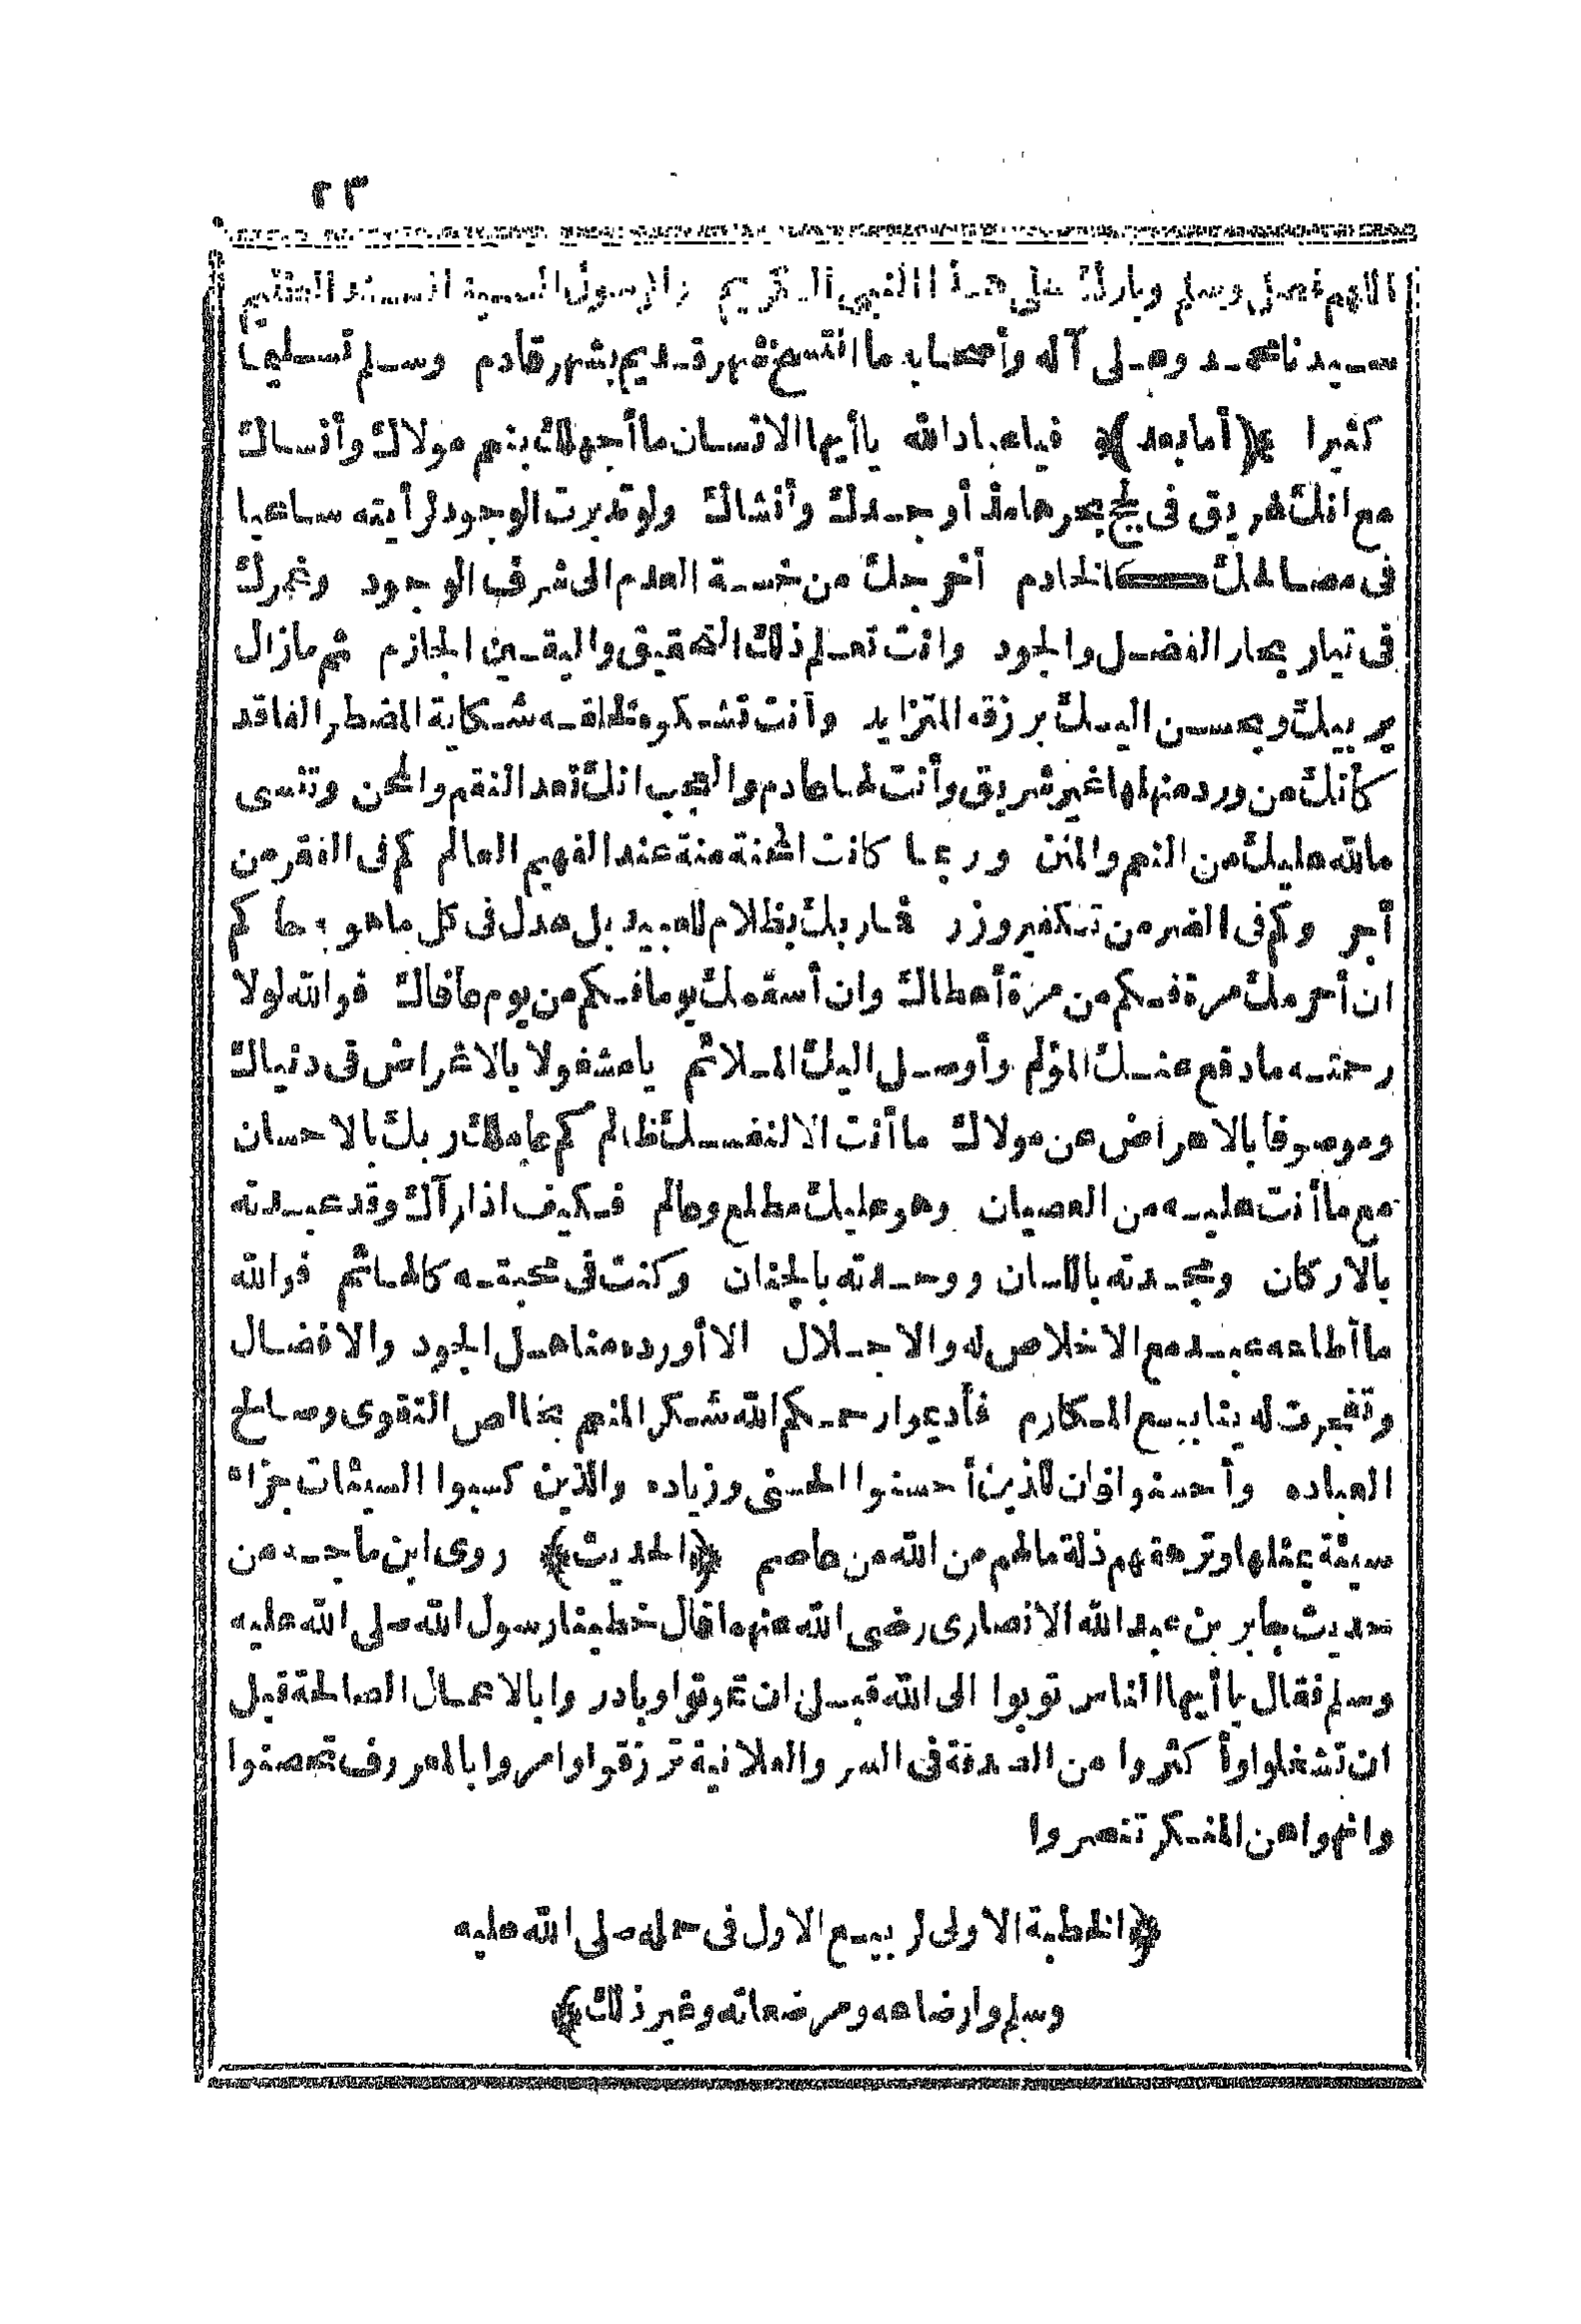 ٢٣
اللهم فصل وسلم وبارك على هذا النبي الكريم والرسول السيد السند العظيم
سيدنا محمد وعلى آله وأصحابه ما انتسخ شهر قديم بشهر قادم وسلم تسليما
كثيرا ﴿أما بعد﴾ فيا عباد الله يا أيها الانسان ما أجهلك بنعم مولاك وأنساك
مع انك غريق فى لج بحرها مذ أوجدك وأنشاك ولو تدبرت الوجود لرأيته ساعيا
فى مصالحك كالخادم أخرجك من خسة العدم الى شرف الوجود وغمرك
فى تيار بحار الفضل والجود وانت تعلم ذلك التحقيق واليقين الجازم ثم مازال
يربيك ويحسن اليك برزقه المتزايد وأنت تشكوه لخلقه شكاية المضطر الفاقد
كأنك من ورد منهلها غير شريق وأنت لها عادم والعجب انك تعد النقم والمحن وتنسى
مالله عليك من النعم والمنن وربما كانت المحنة منة عند الفهيم العالم كم فى الفقر من
أجر وكم فى الضر من تكفير وزر فما ربك بظلام للعبيد بل عدل فى كل ما هو به حاكم
ان أحرمك مرة فكم من مرة أعطاك وان أسقمك يوما فكم من يوم عافاك فوالله لولا
رحمته مادفع عنك المؤلم وأوصل اليك الملائم يا مشغولا بالاغراض فى دنياك
وموصوفا بالاعراض عن مولاك ما أنت الا لنفسك ظالم كم عاملك ربك بالاحسان
مع ما أنت عليه من العصيان وهو عليك مطلع وعالم فكيف اذا رآك وقد عبدته
بالاركان ومجدته باللسان ووحدته بالجنان وكنت فى محبته كالهائم فوالله
ما أطاعه عبده مع الاخلاص له والاجلال الا أورده مناهل الجود والافضال
وتفجرت له ينابيع المكارم فأديموا رحمكم الله شكر المنعم بخالص التقوى وصالح
العباده وأحسنوا فان للذين أحسنوا الحسنى وزياده والذين كسبوا السيئات جزاء
سيئة بمثلها وترهقهم ذلة مالهم من الله من عاصم ﴿الحديث﴾ روى ابن ماجه من
حديث جابر بن عبد الله الانصارى رضى الله عنهما قال خطبنا رسول الله صلى الله عليه
وسلم فقال يا أيها الناس توبوا الى الله قبل ان تموتوا وبادروا بالاعمال الصالحة قبل
ان تشغلوا وأكثروا من الصدقة فى السر والعلانية ترزقوا وامروا بالمعروف تحصنوا
وانهوا عن المنكر تنصروا
﴿الخطبة الاولى لربيع الاول فى حمله صلى الله عليه
وسلم وارضاعه ومرضعاته وغير ذلك﴾